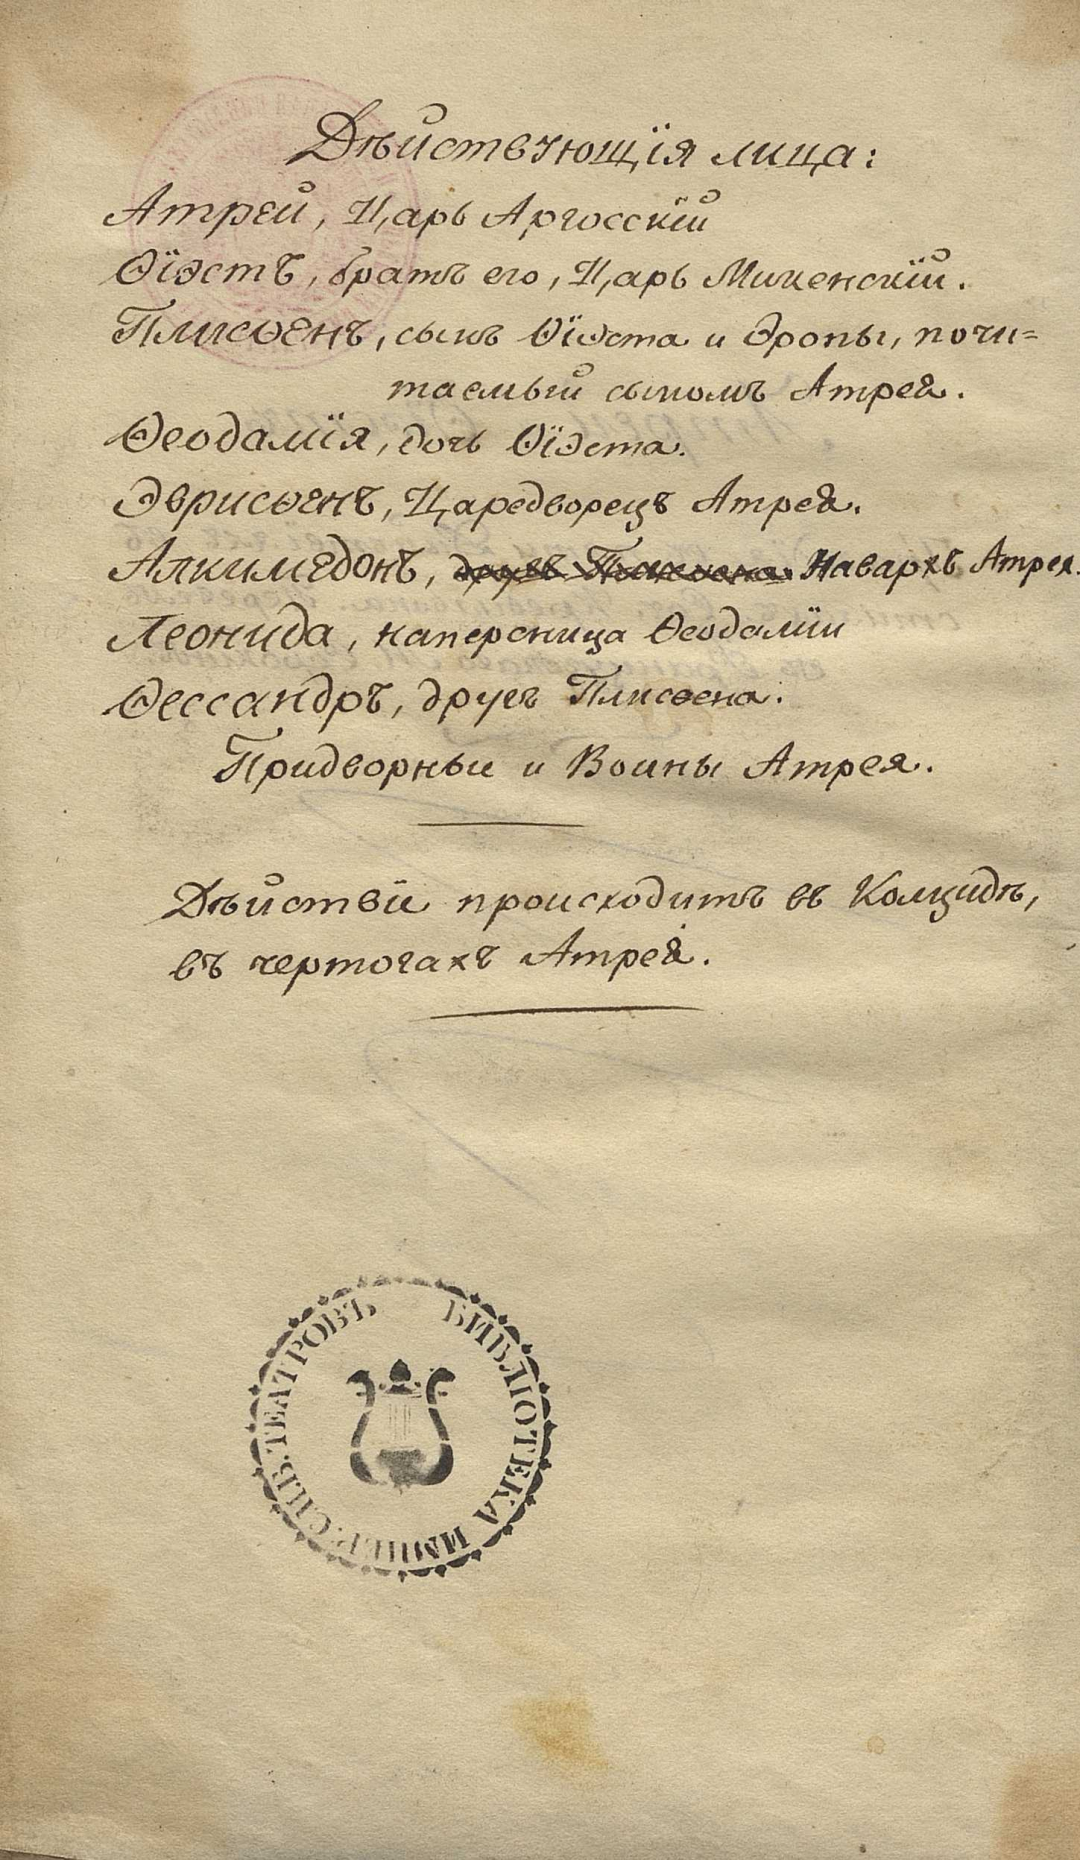 Дѣйствующія лица:
Атрей, Царь Аргосскій
Ѳіэстъ, братъ его, Царь Микенскій.
Плисѳенъ, сынъ Ѳіэста и Эропы, почи=
таемый сыномъ Атрея.
Ѳеодамія, дочь Ѳіэста.
Эврисѳенъ, Царедворецъ Атрея.
Алкимедонъ, другъ Плисѳена. Навархъ Атрея.
Леонида, наперсница Ѳеодаміи
Ѳессандръ, другъ Плисѳена.
Придворныи и Воины Атрея.
Дѣйствіи происходитъ въ Колцидѣ,
въ чертогахъ Атрея.
БИБЛІОТЕКА ИМПЕР. СПВ. ТЕАТРОВЪ